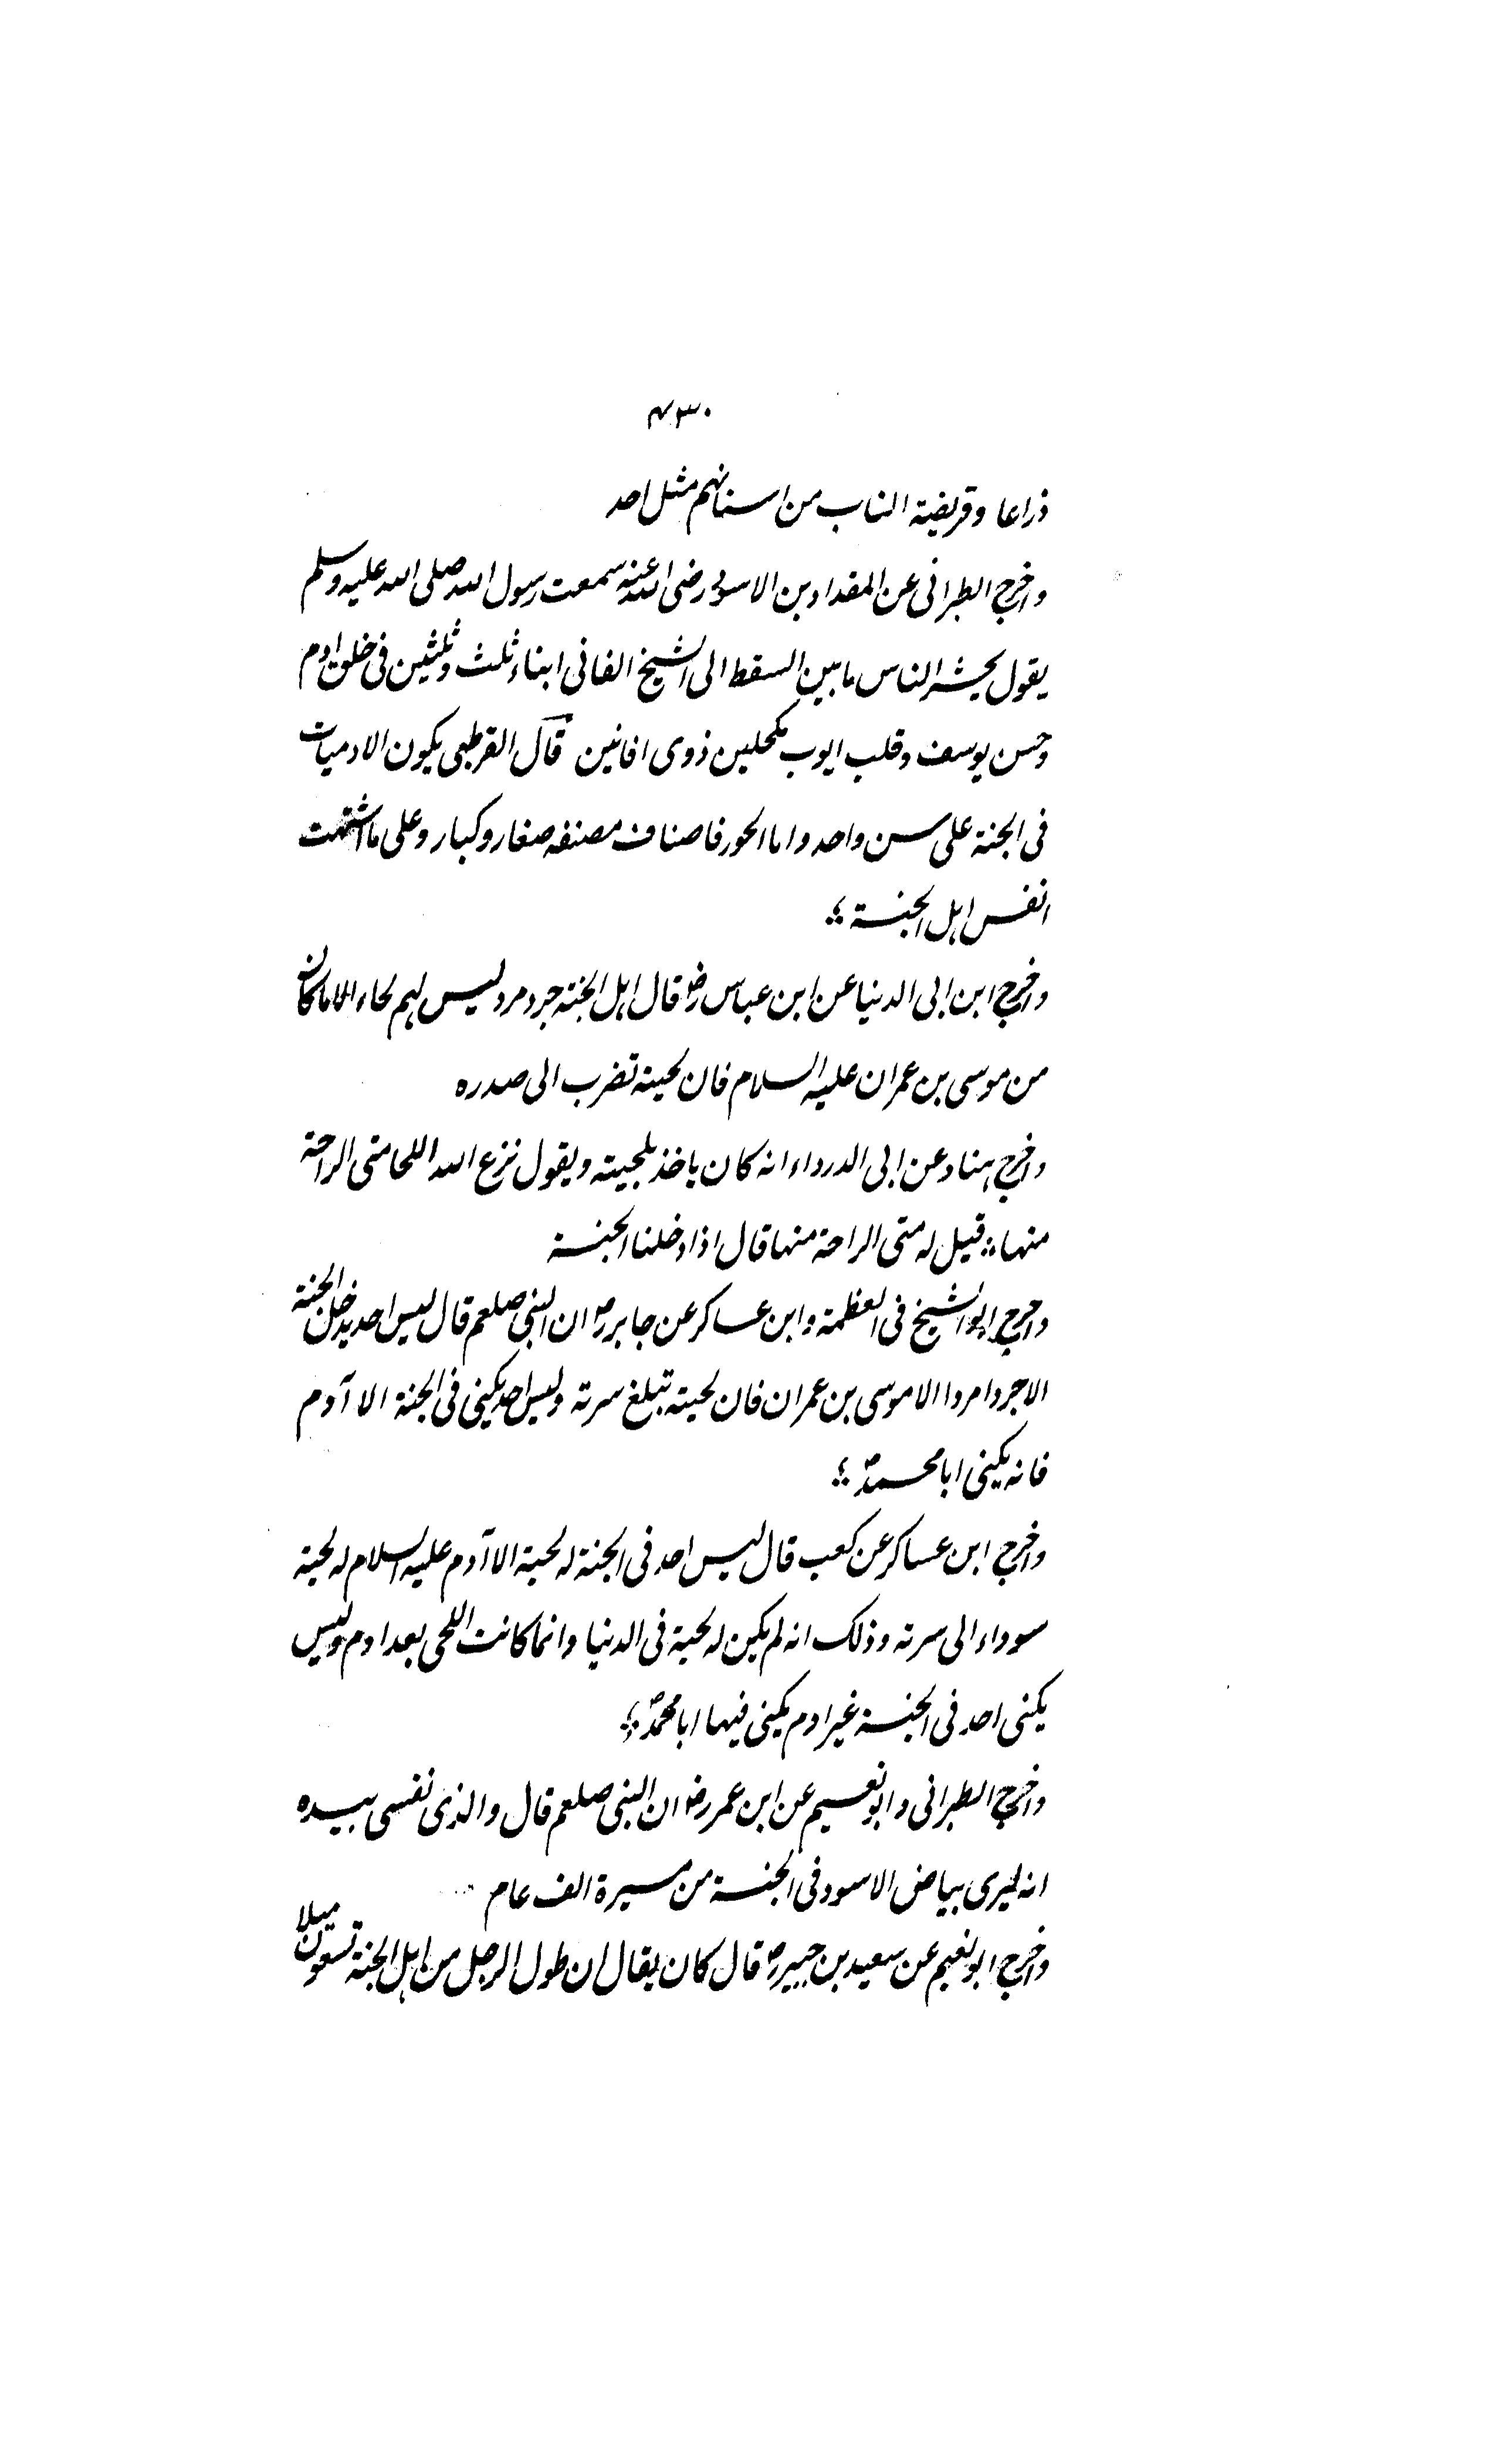 ۴۳۰
ذراعا وقريضة الناب من اسنانهم مثل احد
واخرج الطبرانى عن المقداد بن الاسود رضى الله عنه سمعت رسول الله صلى الله عليه وسلم
يقول يحشر الناس ما بين السقط الى الشيخ الفانى ابناء ثلث وثلثين فى خلق ادم
وحسن يوسف وقلب ايوب مكحلين ذوى افانين قال القرطبى يكون الادميات
فى الجنة على سن واحد واما الحور فاصناف مصنفه صغار وكبار وعلى ما اشتهت
انفس اهل الجنة ؛
واخرج ابن ابى الدنيا عن ابن عباس رض قال اهل الجنة جرد مرد ليس لهم لحاء الا ماكان
من موسى بن عمران عليه السلام فان لحيته تضرب الى صدره
واخرج هناد عن ابى الدرداء انه كان ياخذ بلحيته ويقول نزع الله اللحا متى الراحة
منها ؛ قيل له متى الراحة منها قال اذا دخلنا الجنة
واخرج ابو الشيخ فى العظمة وابن عساكر عن جابر رض ان النبى صلعم قال ليس احد يدخل الجنة
الا جردا مردا الا موسى بن عمران فان لحيته تبلغ سرته وليس احد يكنى فى الجنة الا آدم
فانه يكنى ابا محمدؐ ؛
واخرج ابن عساكر عن كعب قال ليس احد فى الجنة له لحية الا آدم عليه السلام له لحية
سوداء الى سرته وذلك انه لم يكن له لحية فى الدنيا وانما كانت اللحى بعد ادم وليس
يكنى احد فى الجنة غير ادم يكنى فيها ابا محمدؐ ؛
واخرج الطبرانى وابو نعيم عن ابن عمر رض ان النبى صلعم قال والذى نفسى بيده
انه ليرى بياض الاسود فى الجنة من مسيرة الف عام
واخرج ابو نعيم عن سعيد بن جبير رض قال كان يقال ان طول الرجل من اهل الجنة تسعون ميلا